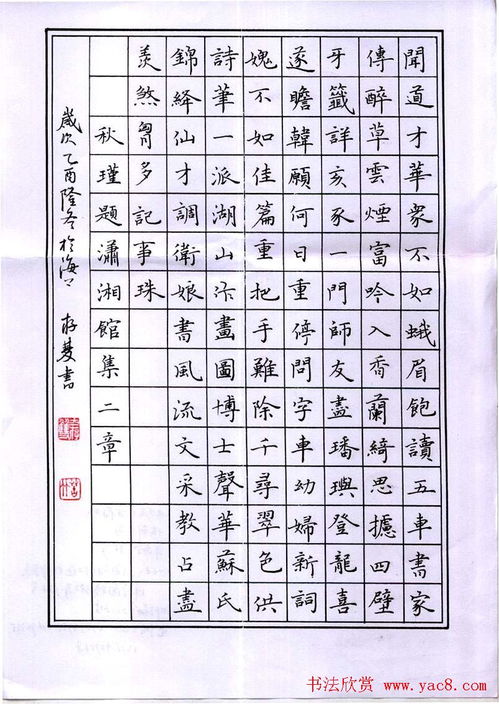 聞道才華衆不如蛾眉飽讀五車書家
傳醉草雲煙富吟入香蘭綺思攄四壁
牙籤詳亥豕一門師友盡璠璵登龍喜
遂瞻韓願何日重停問字車幼婦新詞
愧不如佳篇重把手難除千尋翠色供
詩筆一派湖山汴畫圖博士聲華蘇氏
錦絳仙才調衛娘書風流文采教占盡
羨煞胷多記事珠
秋瑾題瀟湘館集二章
歲次乙酉隆冬於海上 存書
书法欣赏 www.yac8.com